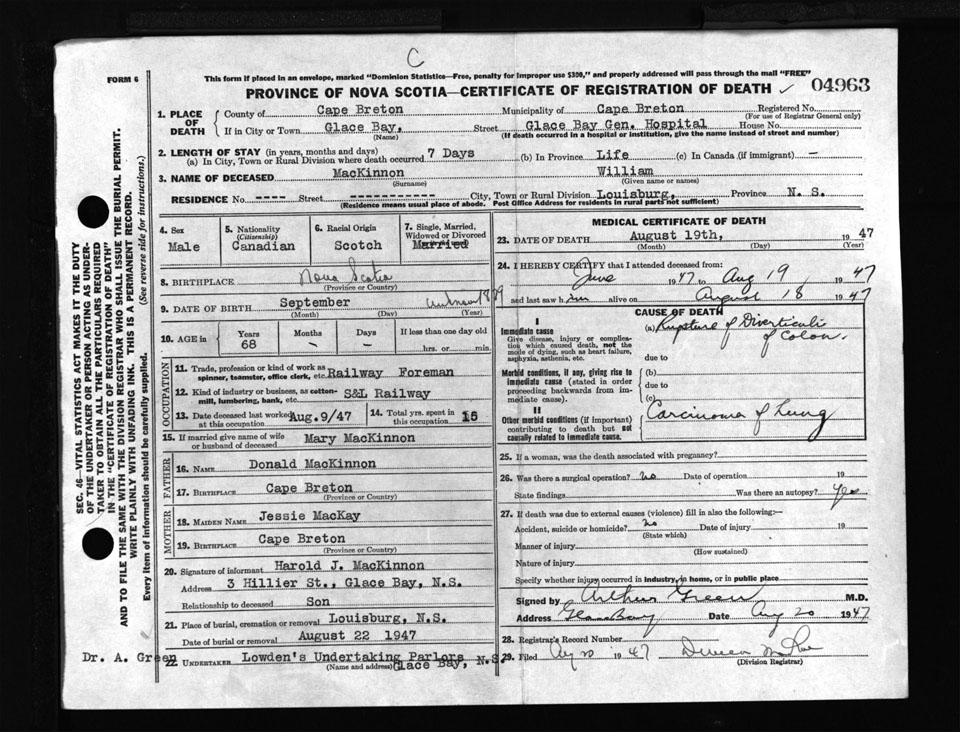 C
FORM 6
This form if placed in an envelope, marked "Dominion Statistics—Free, penalty for improper use $300," and properly addressed will pass through the mail "FREE"
PROVINCE OF NOVA SCOTIA—CERTIFICATE OF REGISTRATION OF DEATH
04963
1. PLACE OF DEATH
County of Cape Breton Municipality of Cape Breton Registered No.
(For use of Registrar General only)
If in City or Town Glace Bay, Street Glace Bay Gen. Hospital House No.
(Name) (If death occurred in a hospital or institution, give the name instead of street and number)
2. LENGTH OF STAY (in years, months and days)
(a) In City, Town or Rural Division where death occurred 7 Days (b) In Province Life (c) In Canada (if immigrant) —
3. NAME OF DECEASED MacKinnon William
(Surname) (Given name or names)
RESIDENCE No. ---- Street ----------- City, Town or Rural Division Louisburg, Province N. S.
(Residence means usual place of abode. Post Office Address for residents in rural parts not sufficient)
4. Sex Male
5. Nationality (Citizenship) Canadian
6. Racial Origin Scotch
7. Single, Married, Widowed or Divorced Married
8. BIRTHPLACE Nova Scotia
(Province or Country)
9. DATE OF BIRTH September Unknown 1879
(Month) (Day) (Year)
10. AGE in Years 68 Months – Days – If less than one day old
hrs. or min.
OCCUPATION
11. Trade, profession or kind of work as spinner, teamster, office clerk, etc. Railway Foreman
12. Kind of industry or business, as cotton-mill, lumbering, bank, etc. S&L Railway
13. Date deceased last worked at this occupation Aug.9/47
14. Total yrs. spent in this occupation 15
15. If married give name of wife or husband of deceased Mary MacKinnon
FATHER
16. NAME Donald MacKinnon
17. BIRTHPLACE Cape Breton
(Province or Country)
MOTHER
18. MAIDEN NAME Jessie MacKay
19. BIRTHPLACE Cape Breton
(Province or Country)
20. Signature of informant Harold J. MacKinnon
Address 3 Hillier St., Glace Bay, N.S.
Relationship to deceased Son
21. Place of burial, cremation or removal Louisburg, N.S.
Date of burial or removal August 22 1947
Dr. A. Green
22. UNDERTAKER Lowden's Undertaking Parlors
(Name and address) Glace Bay, N.S.
MEDICAL CERTIFICATE OF DEATH
23. DATE OF DEATH August 19th, 1947
(Month) (Day) (Year)
24. I HEREBY CERTIFY that I attended deceased from:
June 1947 to Aug 19 1947
and last saw h im alive on August 18 1947
CAUSE OF DEATH
I
Immediate cause
Give disease, injury or complication which caused death, not the mode of dying, such as heart failure, asphyxia, asthenia, etc.
(a) Rupture of Diverticuli of Colon.
due to
Morbid conditions, if any, giving rise to immediate cause (stated in order proceeding backwards from immediate cause).
(b)
due to
(c)
II
Other morbid conditions (if important) contributing to death but not causally related to immediate cause.
Carcinoma of Lung
25. If a woman, was the death associated with pregnancy?
26. Was there a surgical operation? No Date of operation 19
State findings Was there an autopsy? Yes
27. If death was due to external causes (violence) fill in also the following:—
Accident, suicide or homicide? No Date of injury 19
(State which)
Manner of injury
(How sustained)
Nature of injury
Specify whether injury occurred in industry, in home, or in public place
Signed by Arthur Green M.D.
Address Glace Bay Date Aug 20 1947
28. Registrar's Record Number
29. Filed Aug 20 1947
(Division Registrar)
SEC. 46—VITAL STATISTICS ACT MAKES IT THE DUTY
OF THE UNDERTAKER OR PERSON ACTING AS UNDER-
TAKER TO OBTAIN ALL THE PARTICULARS REQUIRED
IN THE "CERTIFICATE OF REGISTRATION OF DEATH"
AND TO FILE THE SAME WITH THE DIVISION REGISTRAR WHO SHALL ISSUE THE BURIAL PERMIT.
WRITE PLAINLY WITH UNFADING INK. THIS IS A PERMANENT RECORD.
Every item of information should be carefully supplied. (See reverse side for instructions.)